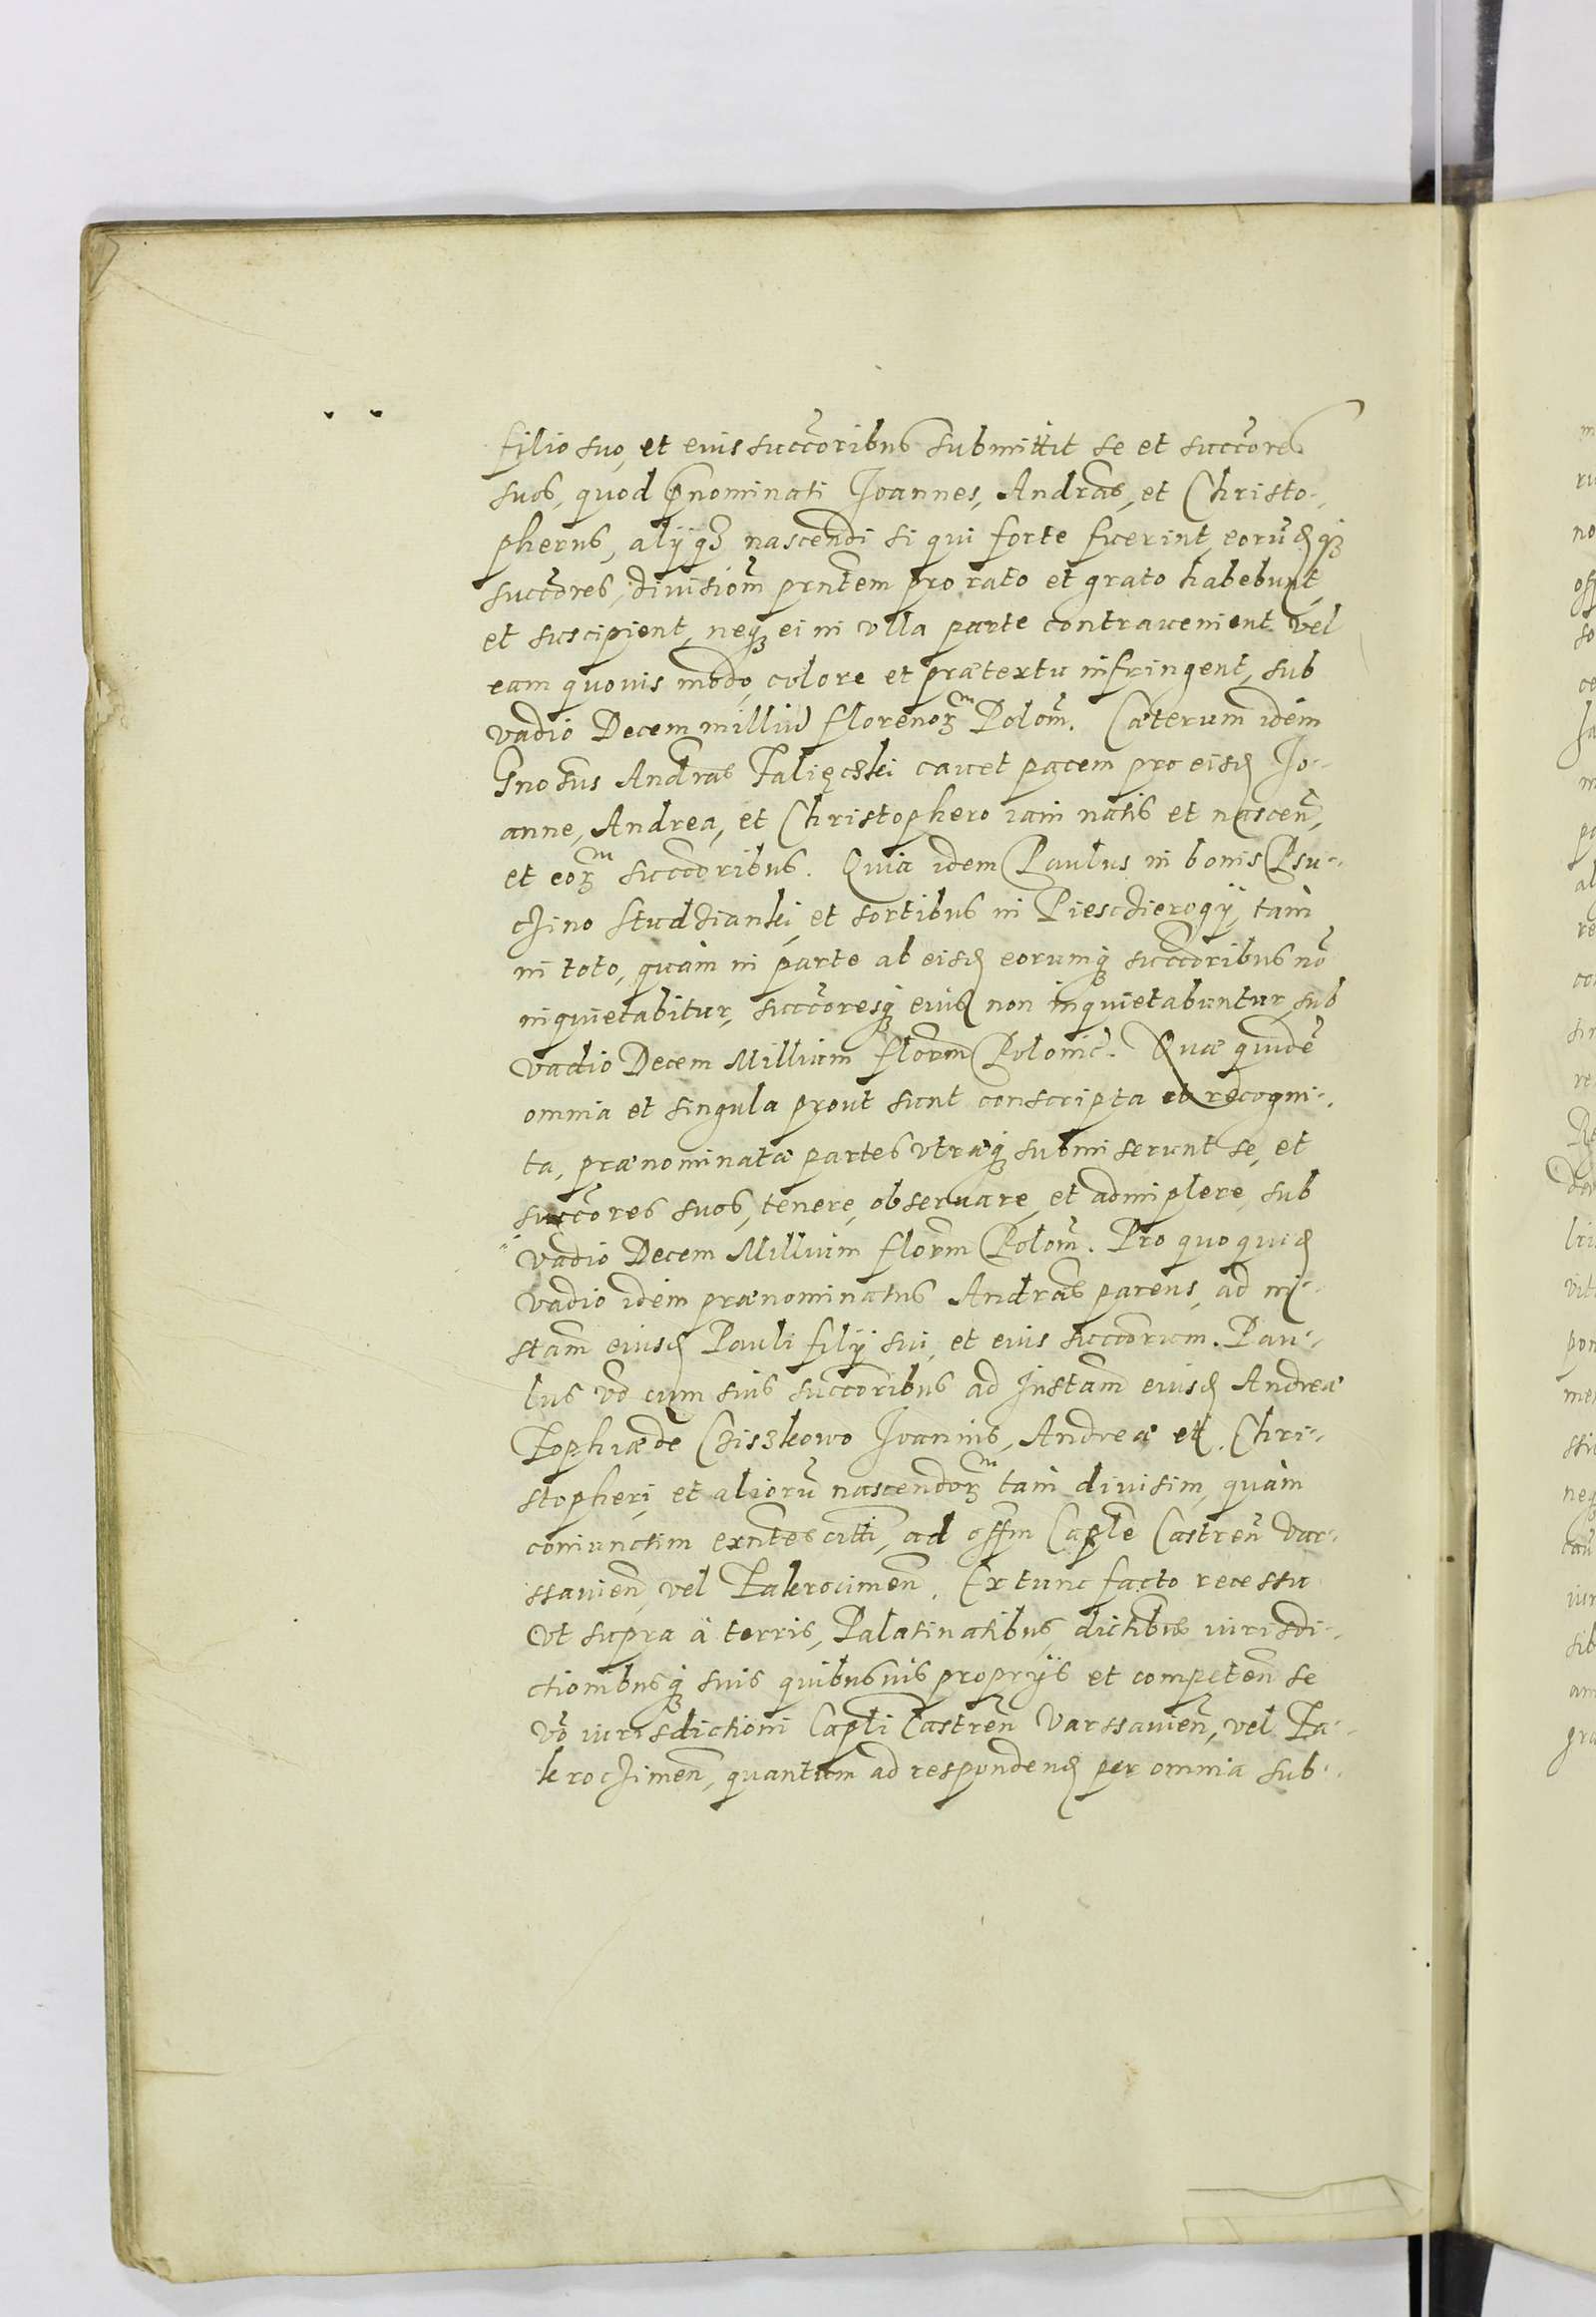 filio suo, et eius succōribus submittit se et succōres
suos, quod p̄nominati Joannes, Andrās, et Christo-
pherus, alijqȝ nascendi si qui forte fuerint, eorūdqȝ
succōres, divisiōm prn̄tem pro rato et grato habebunt,
et suscipient, neqȝ ei in vlla parte contravenient vel
eam quovis modo, colore et prætextu infringent, sub
vadio Decem milliū florenoꝝ Polōm. Cæterum idem
Gnosus Andrās Zalięczki cavet pacem pro eisd Jo-
anne, Andrea, et Christophero iam natis et nascen̄,
et eoꝝ succōribus. Quia idem Paulus in bonis Psu-
czino Studzianki, et sortibus in Piesczierogÿ, tam
in toto, quam in parte ab eisd eorumqȝ succōribus nō
inquietabitur, succōresqȝ eiusd non inquietabuntur, sub
vadio Decem Millium florm̄ Polonic. Quæ quidē
omnia et singula prout sunt conscripta et recogni-
ta, prænominatæ partes vtræqȝ submiserunt se, et
succōres suos, tenere, observare, et adimplere, sub
vadio Decem Millium florm̄ Polōm. Pro quo quid
vadio idem prænominatus Andrās parens, ad in-
stam̄ eiusd Pauli filÿ sui, et eius succōrum. Pau-
lus vō cum suis succōribus ad Instam̄ eiusd Andreæ
Zophiæ de Cziszkowo Joannis, Andreæ et Chri-
stopheri, et aliorū nascendoꝝ tam divisim, quàm
coniunctim exn̄tes citti, ad offm Caple Castren̄ Var-
ssavien̄, vel Zakrocimen̄. Ex tunc facto recessu
vt supra à terris, Palatinatibus, dictibus iurisdi-
ctionibusqȝ suis quibusvis proprÿs et competen̄ se
vō iurisdictioni Capli Castren̄ Varssavien̄, vel Za-
kroczimen̄, quantum ad respondend per omnia sub-